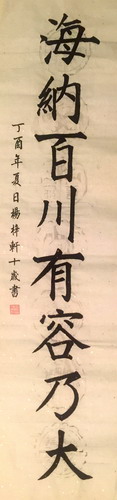 海納百川有容乃大
丁酉年夏日楊梓軒十歲書